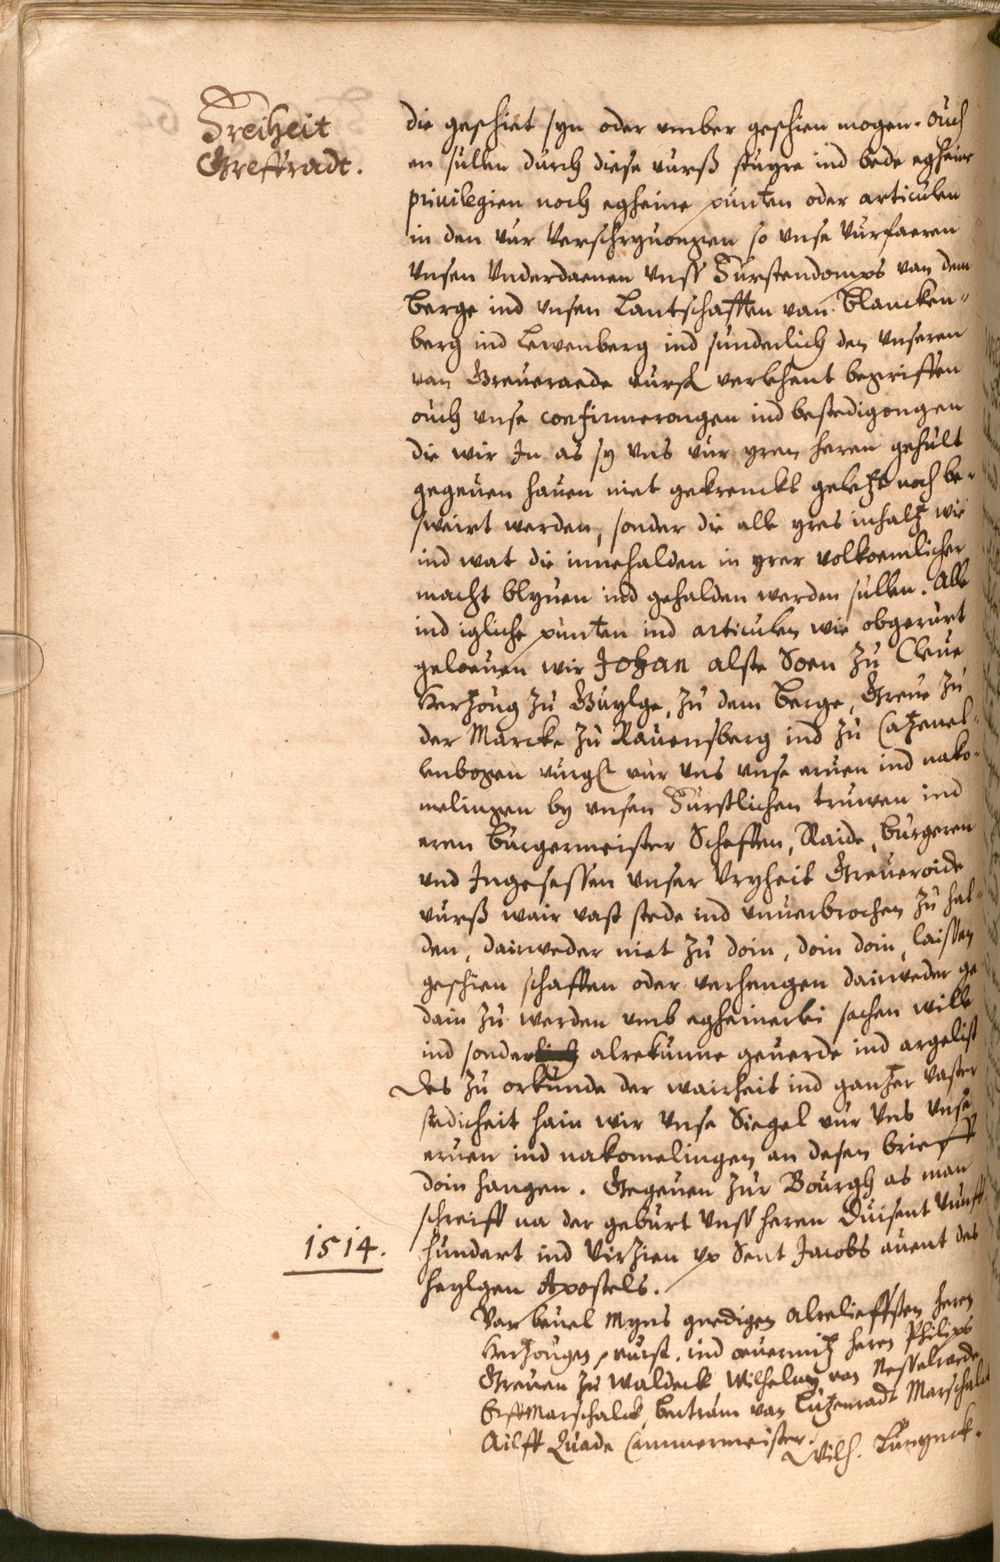 Freiheit
Greffradt.
die geschiet syn oder vmber geschien mogen. Ouch
en sullen durch diese vurß stuyre ind bede egheine
priuilegien noch egheine puncten oder articulen
in den vur Verschryuongen so vnse Vurfaeren
Vnsen Vnderdaenen vnss Furstendomps van dem
Berge ind vnsen Lantschafften van Blancken-
berg ind Lewenberg ind sunderlich den vnseren
van Greueraede vurß verlhent begriffen
ouch vnse confirmerongen ind bestedigongen
die wir In as sy vns vur yren heren gehult
gegeuen hauen niet gekrenckt geletzt noch be-
swiert werden, sonder die alle yres inhaltz wie
ind wat die innehalden in yrer volkoemlicher
macht blyuen ind gehalden werden sullen. Alle
ind igliche puncten ind articulen wie obgerurt
geloeuen wir Johan alste Soen zu Cleue
Hertzoug zu Guylge, zu dem Berge, Greue zu
der Marcke zu Rauensberg ind zu Catzenel-
lenbogen vur vns vnse eruen ind nako-
melingen by vnsen Furstlichen truwen ind
eren Burgermeister Scheffen, Raide, Burgeren
vnd Ingesessen vnser Vryheit Greueroide
vurß wair vast stede ind vnuerbrochen zu hal-
den, dairweder niet zu doin, doin doin, laissen
geschien schaffen oder verhengen dairweder ge-
dain zu werden vmb egheinerlei sachen wille
ind sonder alrekunne geuerde ind argelist
Des zu orkunde der wairheit ind gantzer vaster
stedicheit hain wir vnse Siegel vur vns vnse
eruen ind nakomelingen an desen brieff
doin hangen. Gegeuen zur Bourgh as man
schreiff na der geburt vnss heren Duisent Vunff
1514.
hundert ind Virzien up Sent Jacobs auent des
heylgen Apostels.
Van beuel Myns gnedigen alreliefften heren
Hertzougen vurst. ind ouermitz heren Philips
Greuen zu Waldeck Wilhelm van Nesselraede
ErffMarschalck, Bertram van Lutzenradt Marschalck
Ailff Quade Cammermeister.
Wilh. Lunynck.